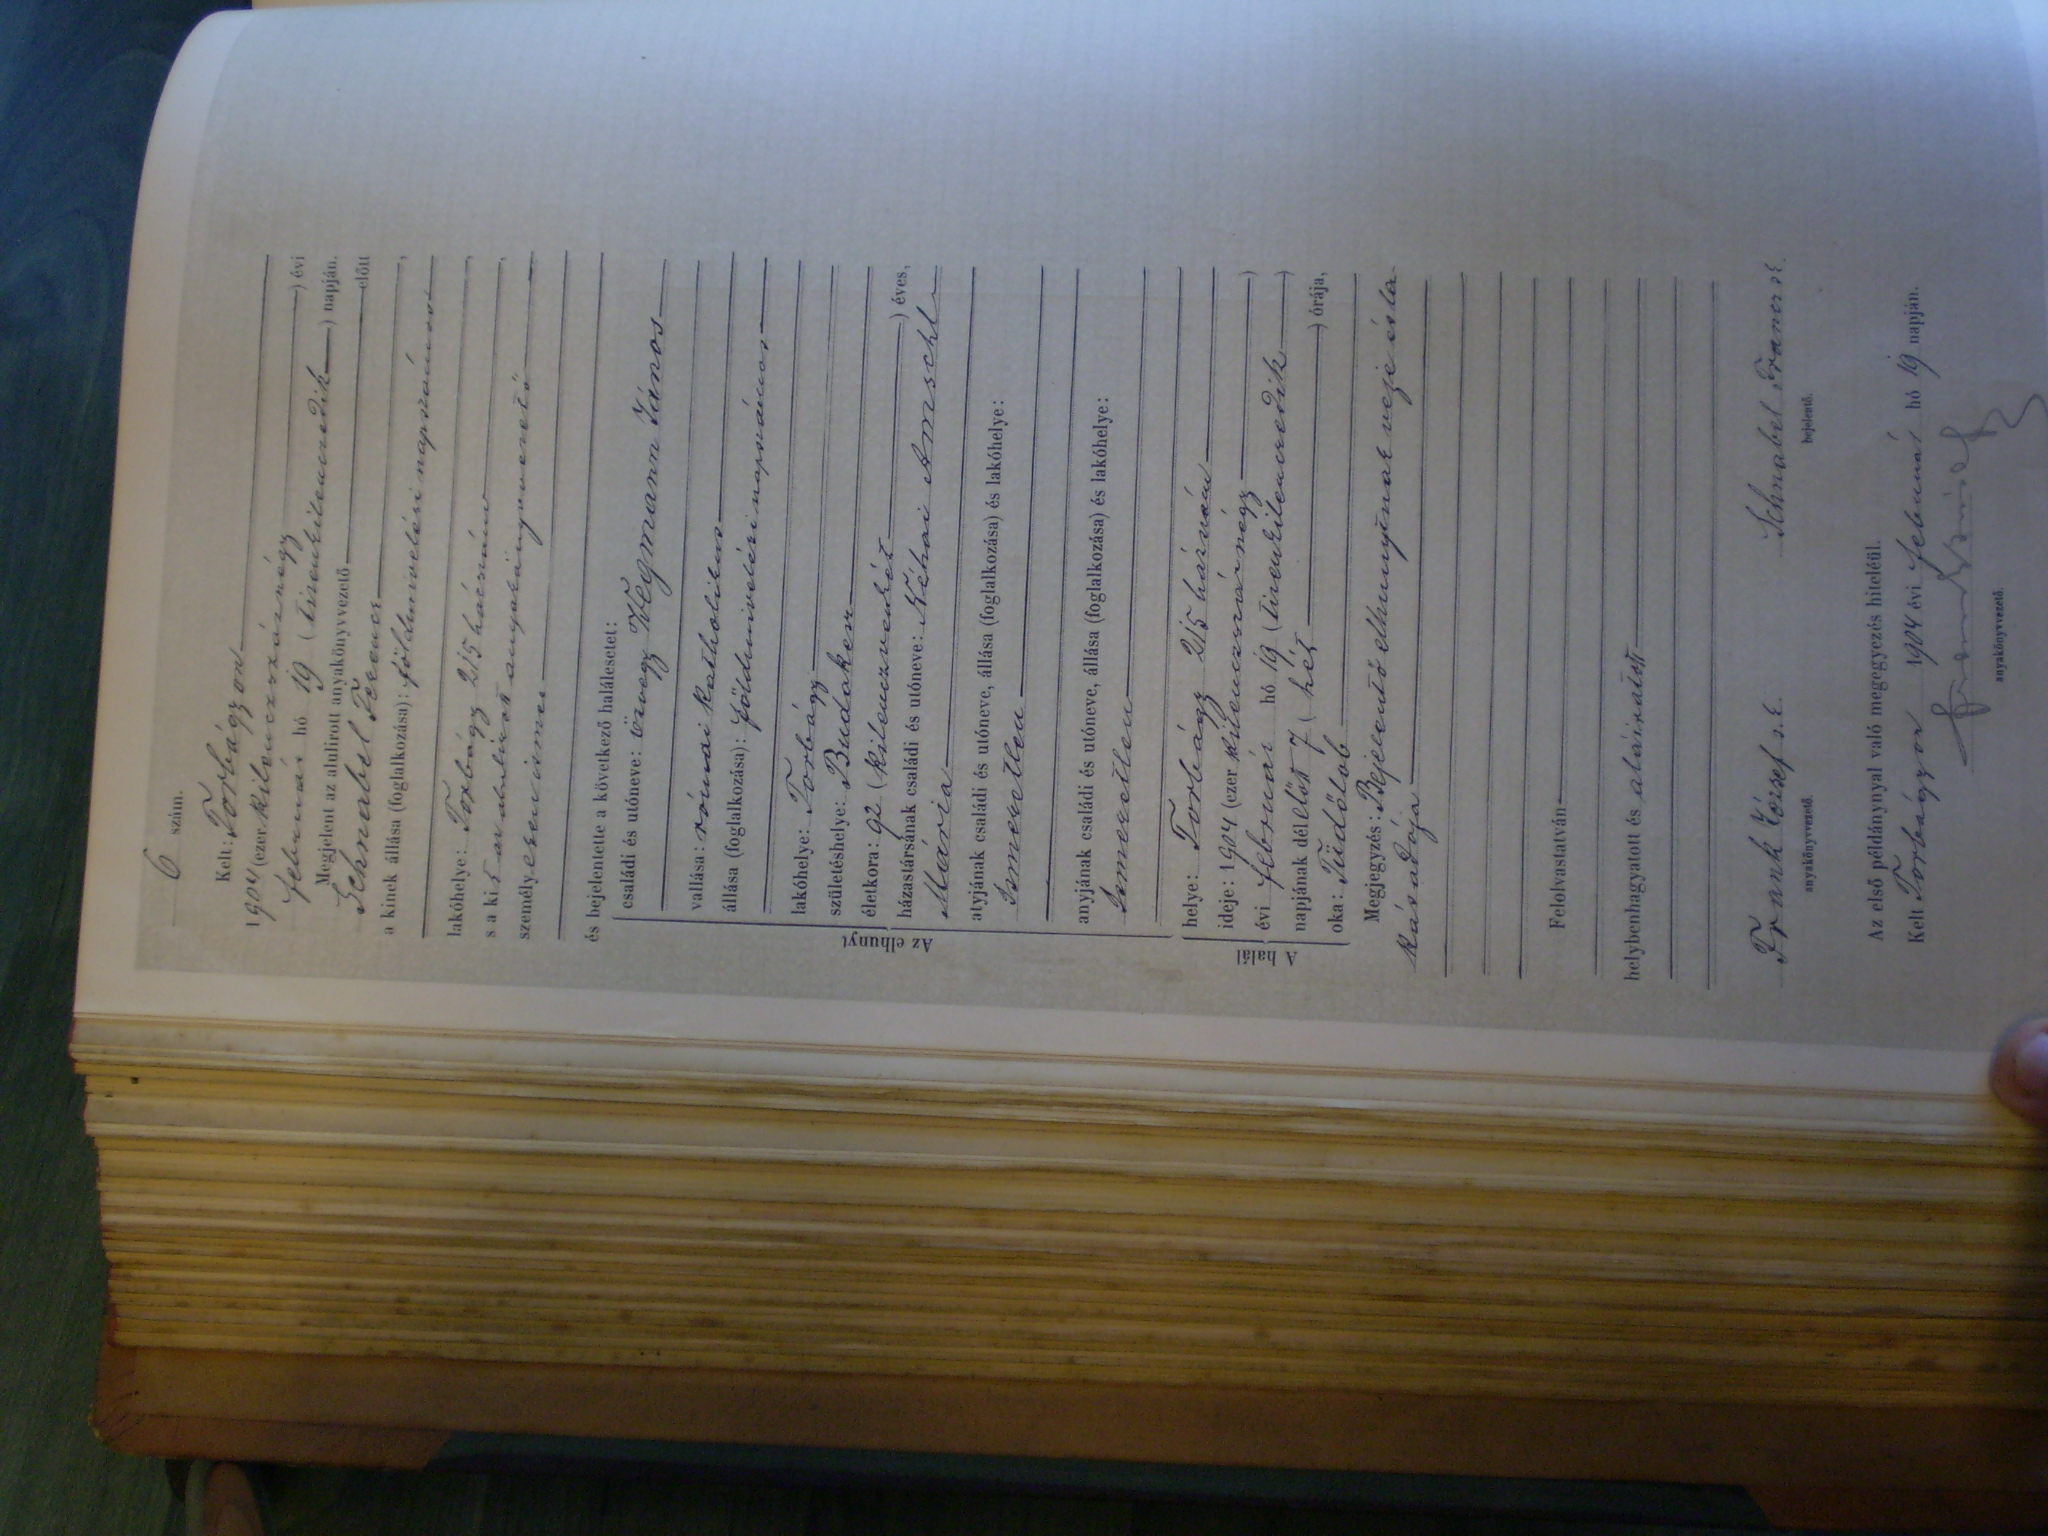 6 szám.
Kelt: Torbágyon
1904 (ezer kilenczszáznégy) évi
február hó 19 (tizenkilenczedik) napján.
Megjelent az alulirott anyakönyvvezető előtt
Schnabel Ferencz
a kinek állása (foglalkozása): földmivelési napszámos,
lakóhelye: Torbágy 215 házszám,
s a ki
személyesen ismer
és bejelentette a következő halálesetet:
Az elhunyt
családi és utóneve: özvegy Wegmann János
vallása: római katholikus
állása (foglalkozása): földmivelési napszámos
lakóhelye: Torbágy
születéshelye: Budakesz
életkora: 92 (kilenczvenkét) éves,
házastársának családi és utóneve: Néhai Amschl
Mária
atyjának családi és utóneve, állása (foglalkozása) és lakóhelye:
Ismeretlen
anyjának családi és utóneve, állása (foglalkozása) és lakóhelye:
Ismeretlen
A halál
helye: Torbágy 215 házszám
ideje: 1904 (ezer kilenczszáznégy)
évi február hó 19 (tizenkilenczedik)
napjának dél előtt 7 (hét) órája,
oka: Tüdőlob
Megjegyzés: Bejelentő elhunytnak veje és la-
kásadója
Felolvastatván
helybenhagyatott és aláiratott
Frank József s.k. Schnabel Francz s.k.
anyakönyvvezető. bejelentő.
Az első példánynyal való megegyezés hiteléül.
Kelt Torbágyon 1904 évi február hó 19 napján.
anyakönyvvezető.